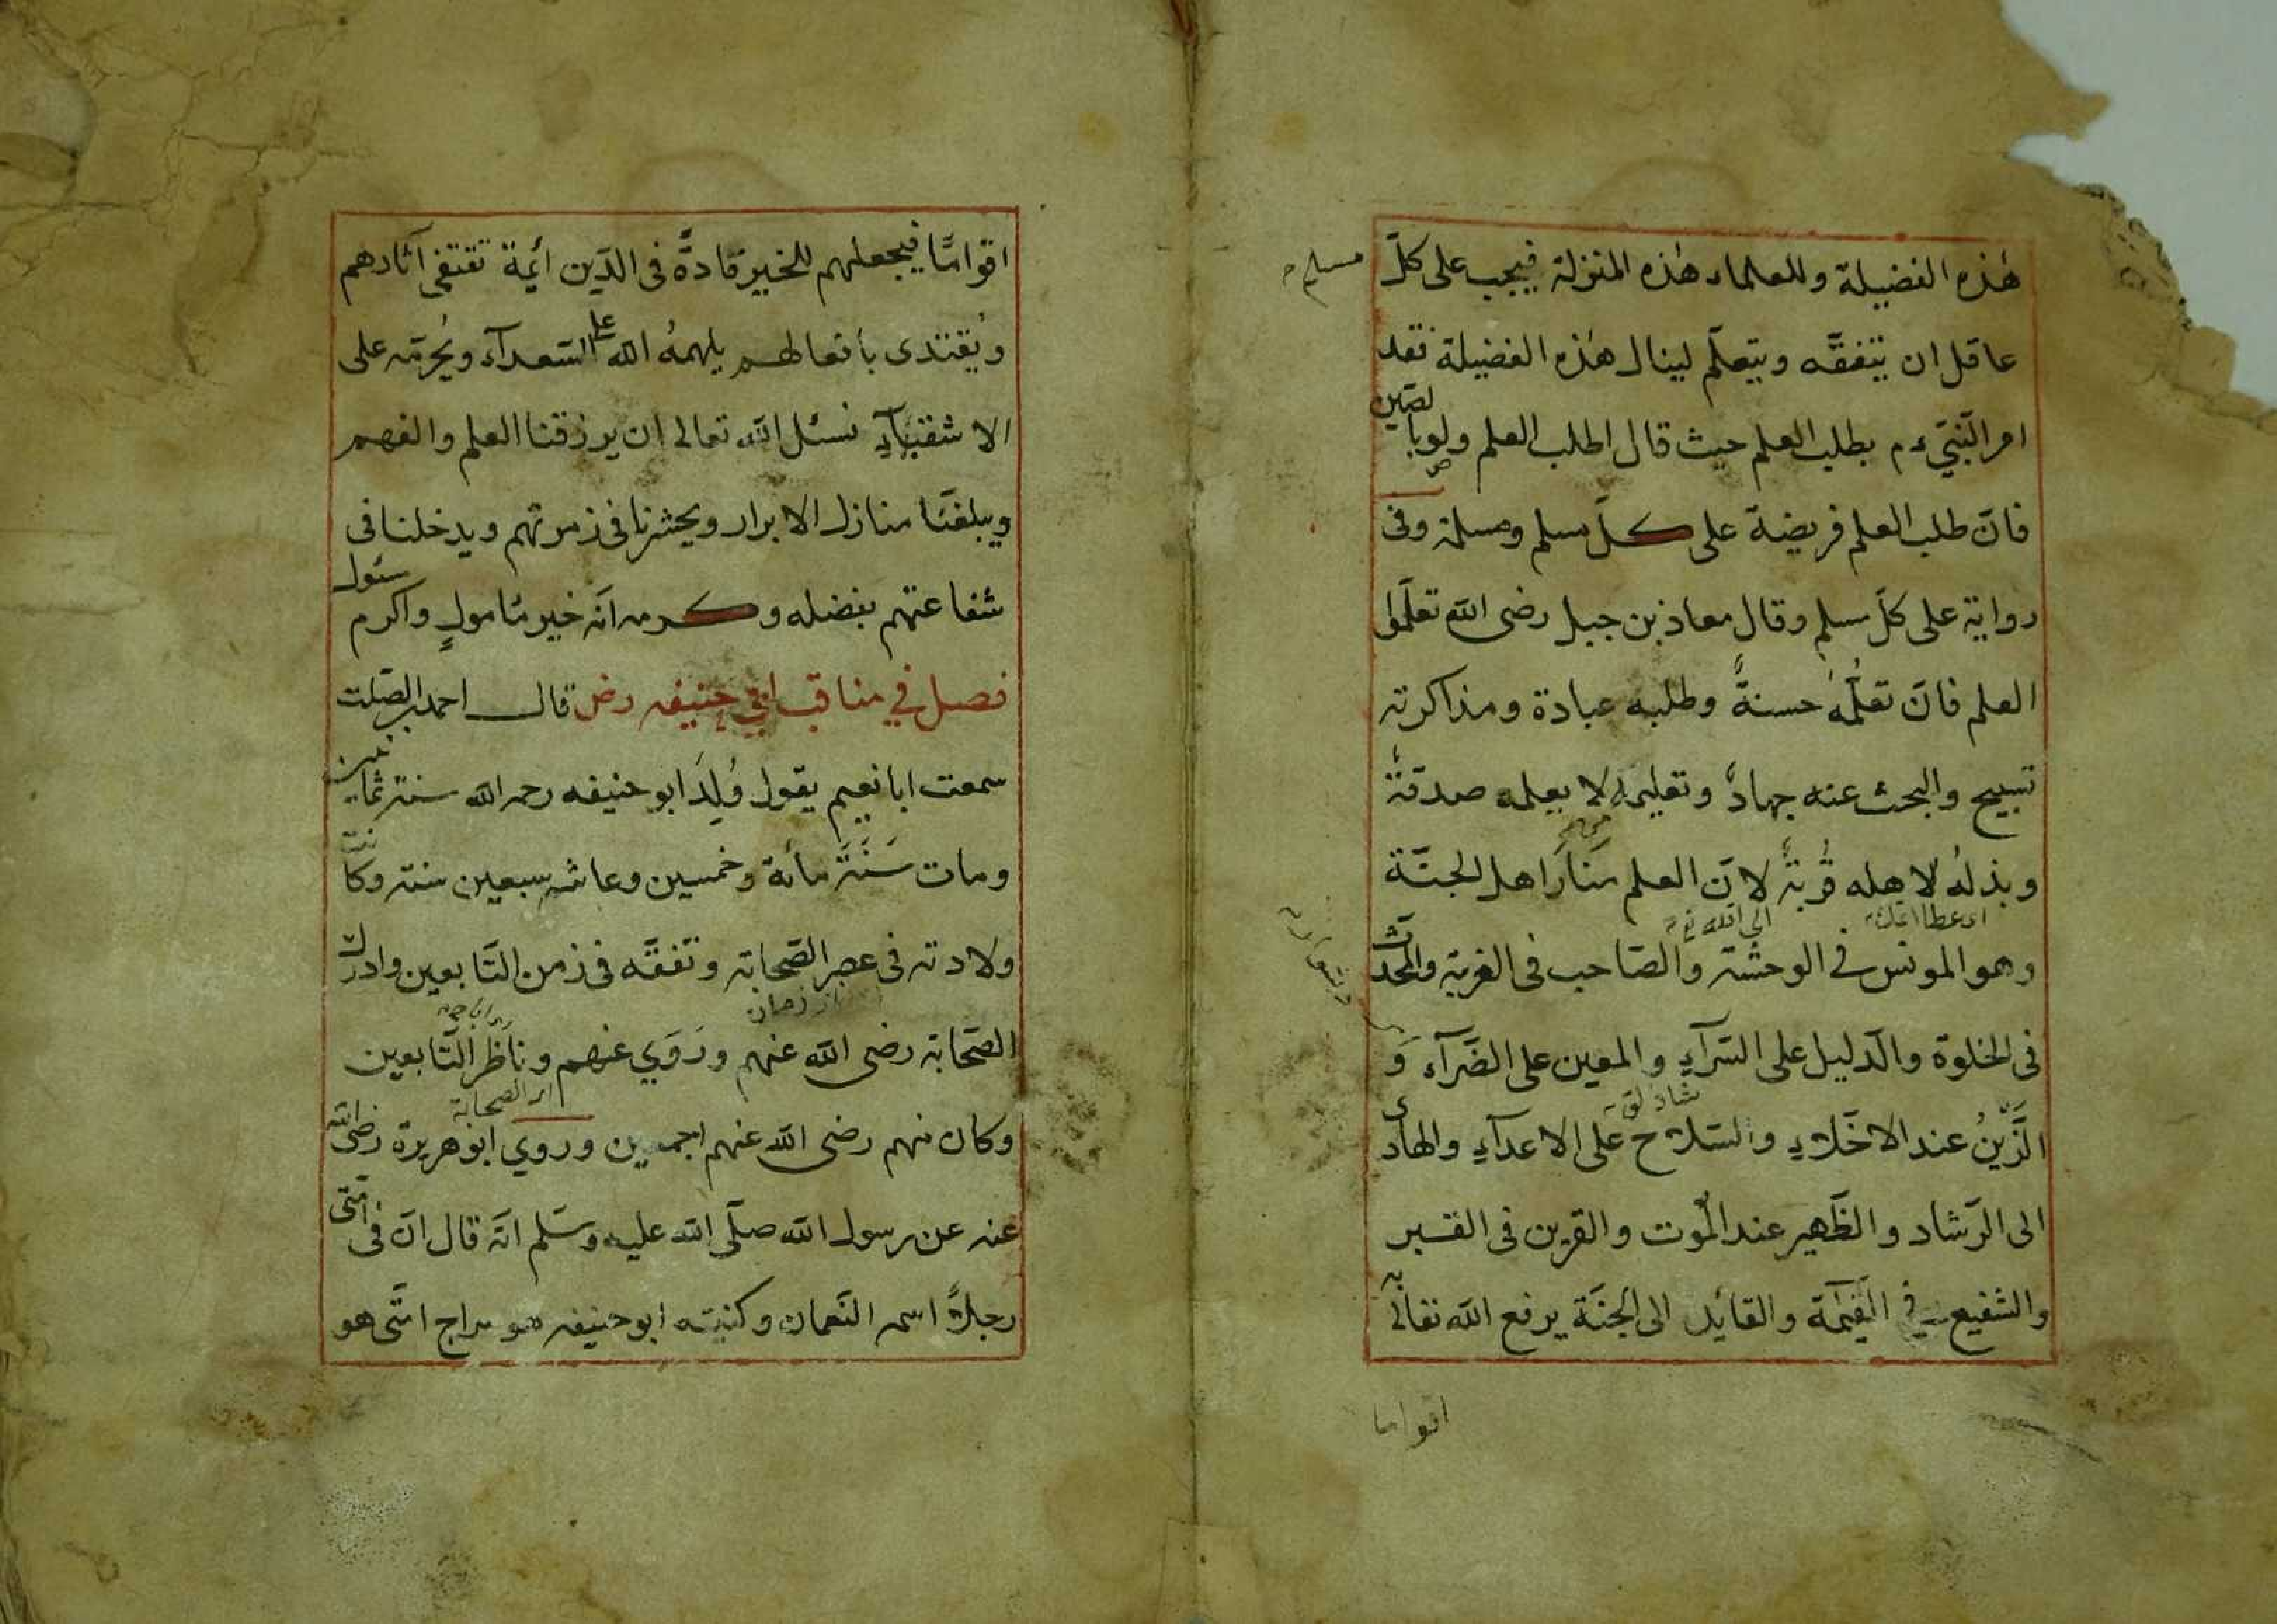 هٰذه الفضيلة وللعلماء هٰذه المنزلة فيجب على كلّ
مسلم
عاقل ان يتفقّه ويتعلّم لينال هٰذه الفضيلة فقد
امر النّبيّ ءم بطلب العلم حيث قال اطلب العلم ولو بالصّين
فانّ طلب العلم فريضة على كلّ مسلم ومسلمة وفى
رواية على كلّ مسلم وقال معاذ بن جبل رضى الله تعلّموا
العلم فانّ تعلُّمَهُ حسنةٌ وطلبه عبادة ومذاكرته
تسبيح والبحث عنه جهادٌ وتعليمه لا يعلمه صدقةٌ
وبذلُهُ لاهله قُربَةٌ لانّ العلم مَنَارَ اهل الجنّة
وهو المونس فى الوحشة والصّاحب فى الغربة والمحدّث
فى الخلوة والدّليل على السّرآءِ والمعين على الضّرآء وَ
الزَّيّنُ عند الاخّلاءِ والسّلاح على الاعدآءِ والهادى
الى الرّشاد والظّهير عند المُوت والقرين فى القبر
والشفيع فى القِيٰمَة والقائد الى الجنّة يرفع الله تعالى به
اقواما
اقوامًا فيجعلهم للخير قادةً فى الدّين ائمة تقتفى آثارهم
ويُقتدى بافعالهم يلهمهُ الله علا السّعدآء ويُحرمّه على
الاشقيآءِ نسئل الله تعالى ان يرزقنا العلم والفهم
ويبلغَنا منازل الابرار ويحشرنا فى زمرتهم ويدخلنا فى
شفاعتهم بفضله وكرمه انّه خير مامولٍ واكرم سئول
فصل في مناقب ابي حنيفه رض قال احمد بن الصّلت
سمعت ابا نعيم يقول وُلِدَ ابو حنيفه رحمه الله سنة ثمانين
ومات سَنَةَ مائة وخمسين وعاش سبعين سنة وكانت
ولادته فى عصر الصّحابة وتفقّه فى زمن التّابعين وادرك
از زمان
الصّحابة رضى الله عنهم ورَوَي عنهم وناظَرَ التّابعين
ابر الصحابة
وكان منهم رضى الله عنهم اجمعين وروي ابو هريرة رضى الله
عنه عن رسول الله صلّى الله عليه وسّلم انّه قال انّ فى امّتى
رجلاً اسمه النّعمان وكنيته ابو حنيفه هو سراج امّتى هو